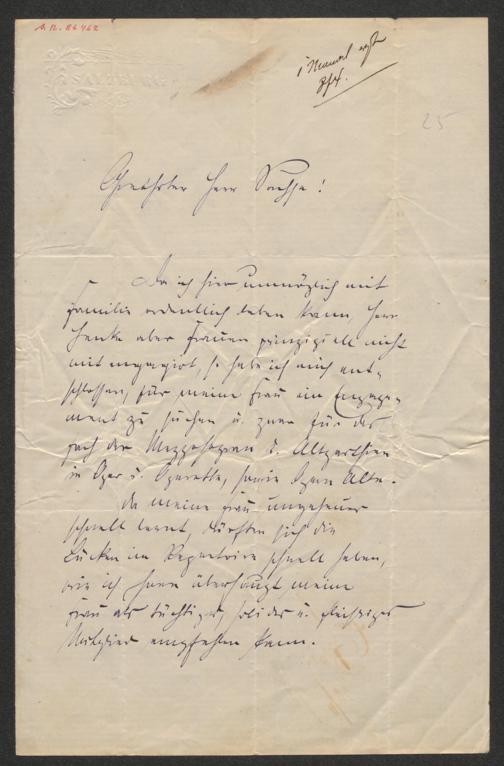 SALZBURG
25
Geehrter Herr Sachse!
Da ich hier unmöglich mit
Familie ordentlich leben kann, Herr
aber Frauen prinzipiell nicht
mit engagirt, so habe ich mich ent-
schlossen, für meine Frau ein Engage-
ment zu suchen u. zwar für das
Fach der Mezzosopran u. Altparthien
in Oper u. Operette, sowie Alte.
Da meine Frau ungeheuer
schnell lernt, dürften sich die
Lücken im Repertoire schnell heben,
wie ich Ihnen überhaupt meine
Frau als tüchtiges, solides u. fleißiges
Mitglied empfehlen kann.